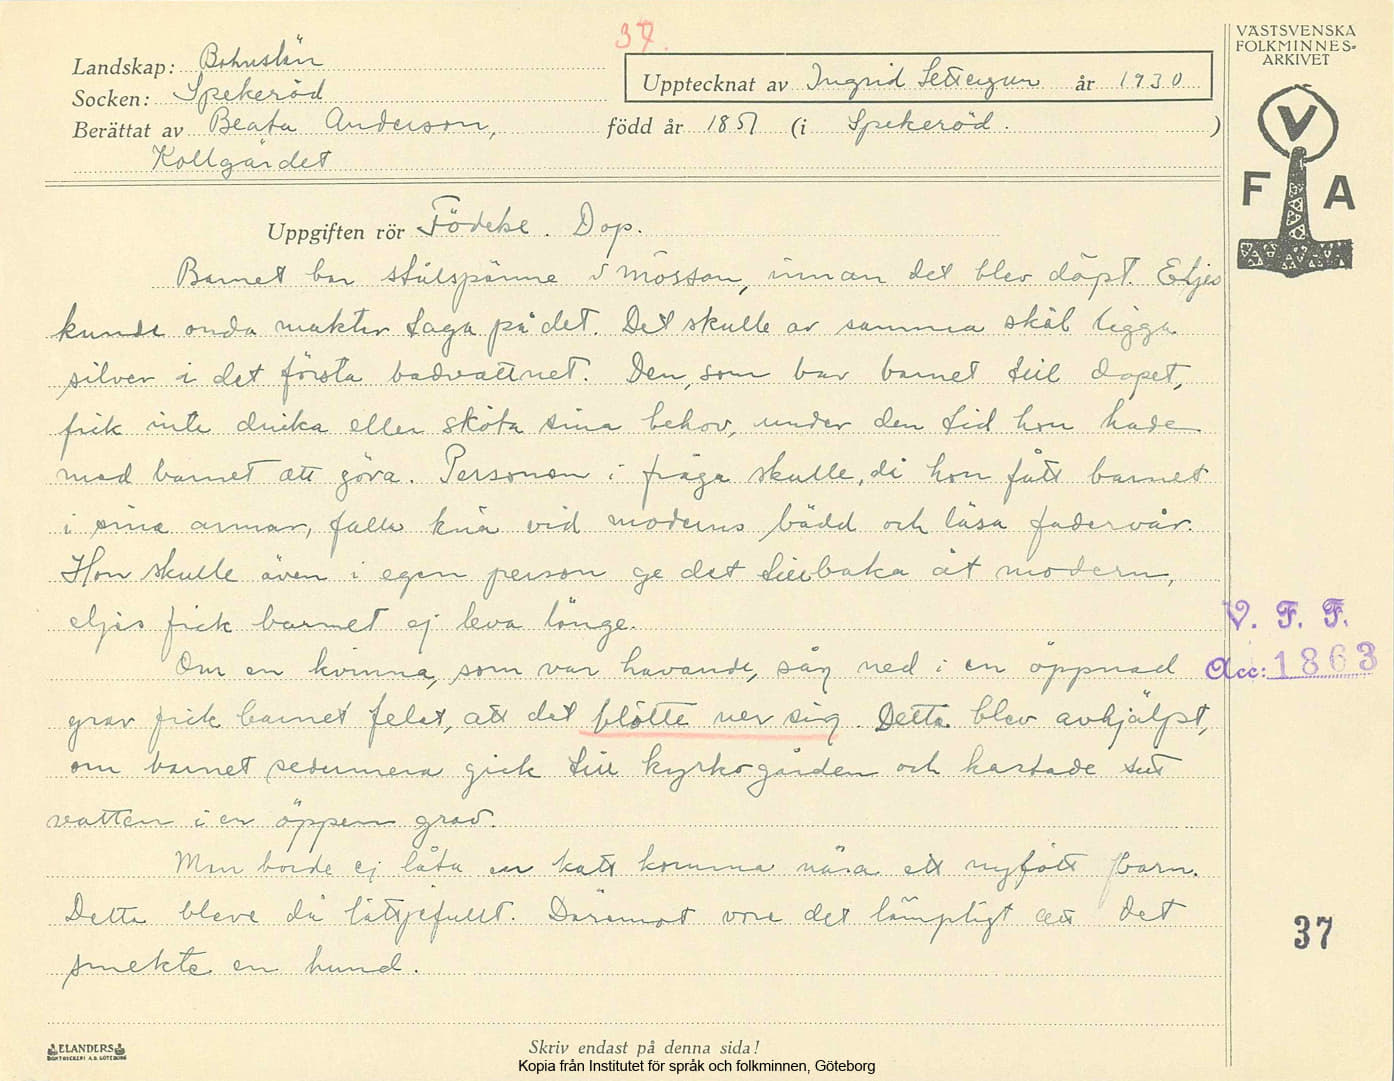 37.
VÄSTSVENSKA
FOLKMINNES-
ARKIVET
Landskap: Bohuslän
Upptecknat av Ingrid år 1930
Socken: Spekeröd
Berättat av Beata Anderson, född år 1851 (i Spekeröd.)
Kollgärdet
V
F A
Uppgiften rör Födelse. Dop.
Barnet bar stålspänne i mössan, innan det blev döpt. Eljes
kunde onda makter taga på det. Det skulle av samma skäl ligga
silver i det första badvattnet. Den, som bar barnet till dopet,
fick inte dricka eller sköta sina behov, under den tid hon hade
med barnet att göra. Personen i fråga skulle, då hon fått barnet
i sina armar, falla knä vid moderns bädd och läsa fadervår.
Hon skulle även i egen person ge det tillbaka åt modern,
eljes fick barnet ej leva länge.
V. F. F.
Om en kvinna, som var havande, såg ned i en öppnad
Acc: 1863
grav fick barnet felet, att det blötte ner sig. Detta blev avhjälpt,
om barnet sedermera gick till kyrkogården och kastade sitt
vatten i en öppen grav.
Man borde ej låta en katt komma nära ett nyfött barn.
Detta bleve då lättjefullt. Däremot vore det lämpligt att det
37
smekte en hund.
ELANDERS
BOKTRYCKERI A.B. GÖTEBORG
Skriv endast på denna sida!
Kopia från Institutet för språk och folkminnen, Göteborg